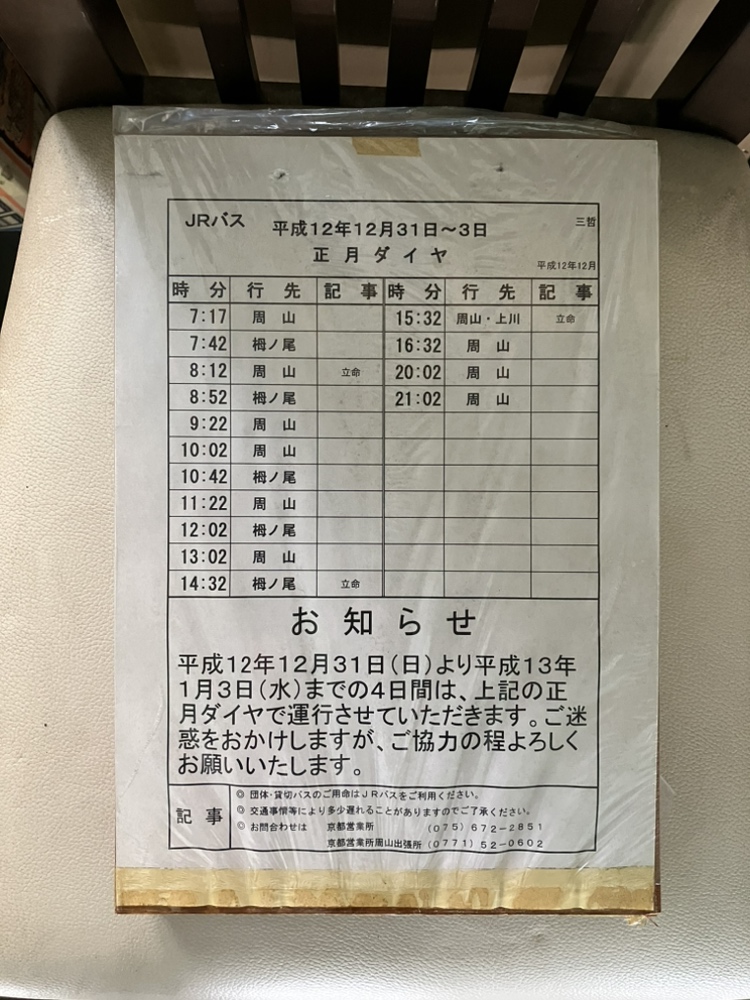 JRバス 平成12年12月31日～3日 三哲
正月ダイヤ
平成12年12月
時分 行先 記事 時分 行先 記事
7:17 周山 15:32 周山・上川 立命
7:42 栂ノ尾 16:32 周山
8:12 周山 立命 20:02 周山
8:52 栂ノ尾 21:02 周山
9:22 周山
10:02 周山
10:42 栂ノ尾
11:22 周山
12:02 栂ノ尾
13:02 周山
14:32 栂ノ尾 立命
お知らせ
平成12年12月31日(日)より平成13年
1月3日(水)までの4日間は、上記の正
月ダイヤで運行させていただきます。ご迷
惑をおかけしますが、ご協力の程よろしく
お願いいたします。
記事
◎ 団体・貸切バスのご用命はJRバスをご利用ください。
◎ 交通事情等により多少遅れることがありますのでご了承ください。
◎ お問合わせは 京都営業所 (075)672-2851
京都営業所周山出張所 (0771)52-0602